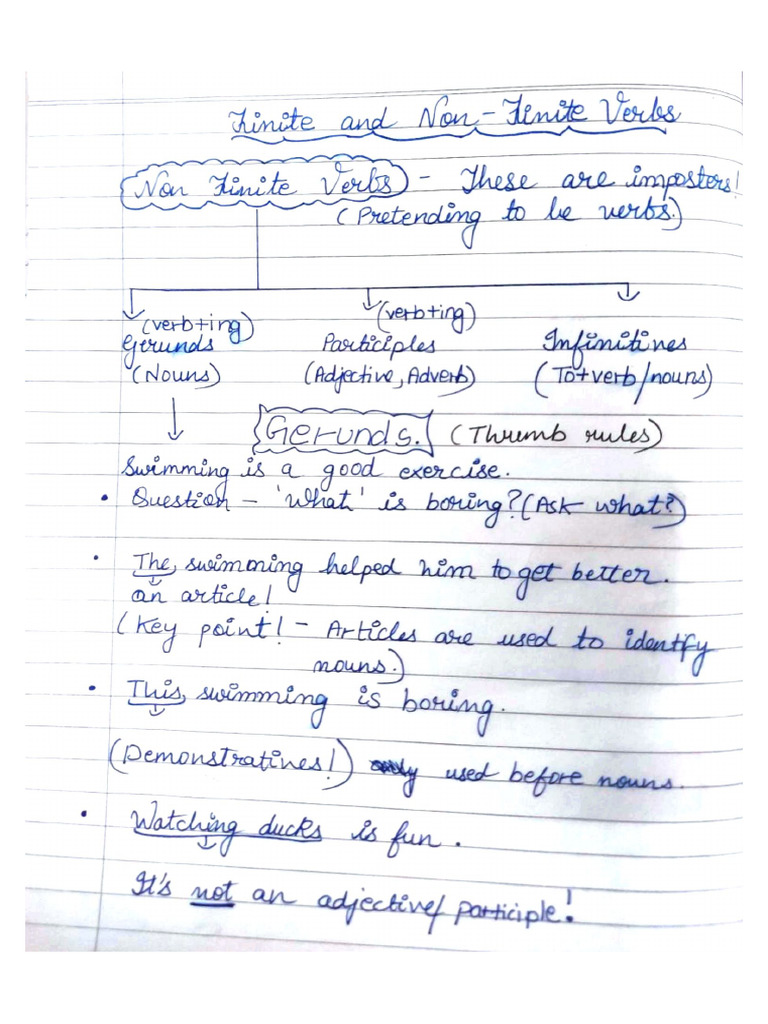 Finite and Non-Finite Verbs
Non Finite Verbs - These are imposters!
(Pretending to be verbs.)
(verb+ing) (verb+ing)
Gerunds Participles Infinitives
(Nouns) (Adjective, Adverb) (To+verb/nouns)
Gerunds. (Thumb rules)
Swimming is a good exercise.
• Question - 'What' is boring? (Ask what?)
• The swimming helped him to get better.
an article!
(Key point! - Articles are used to identify
nouns.)
• This swimming is boring.
(Demonstratives!) used before nouns.
• Watching ducks is fun.
It's not an adjective/participle!